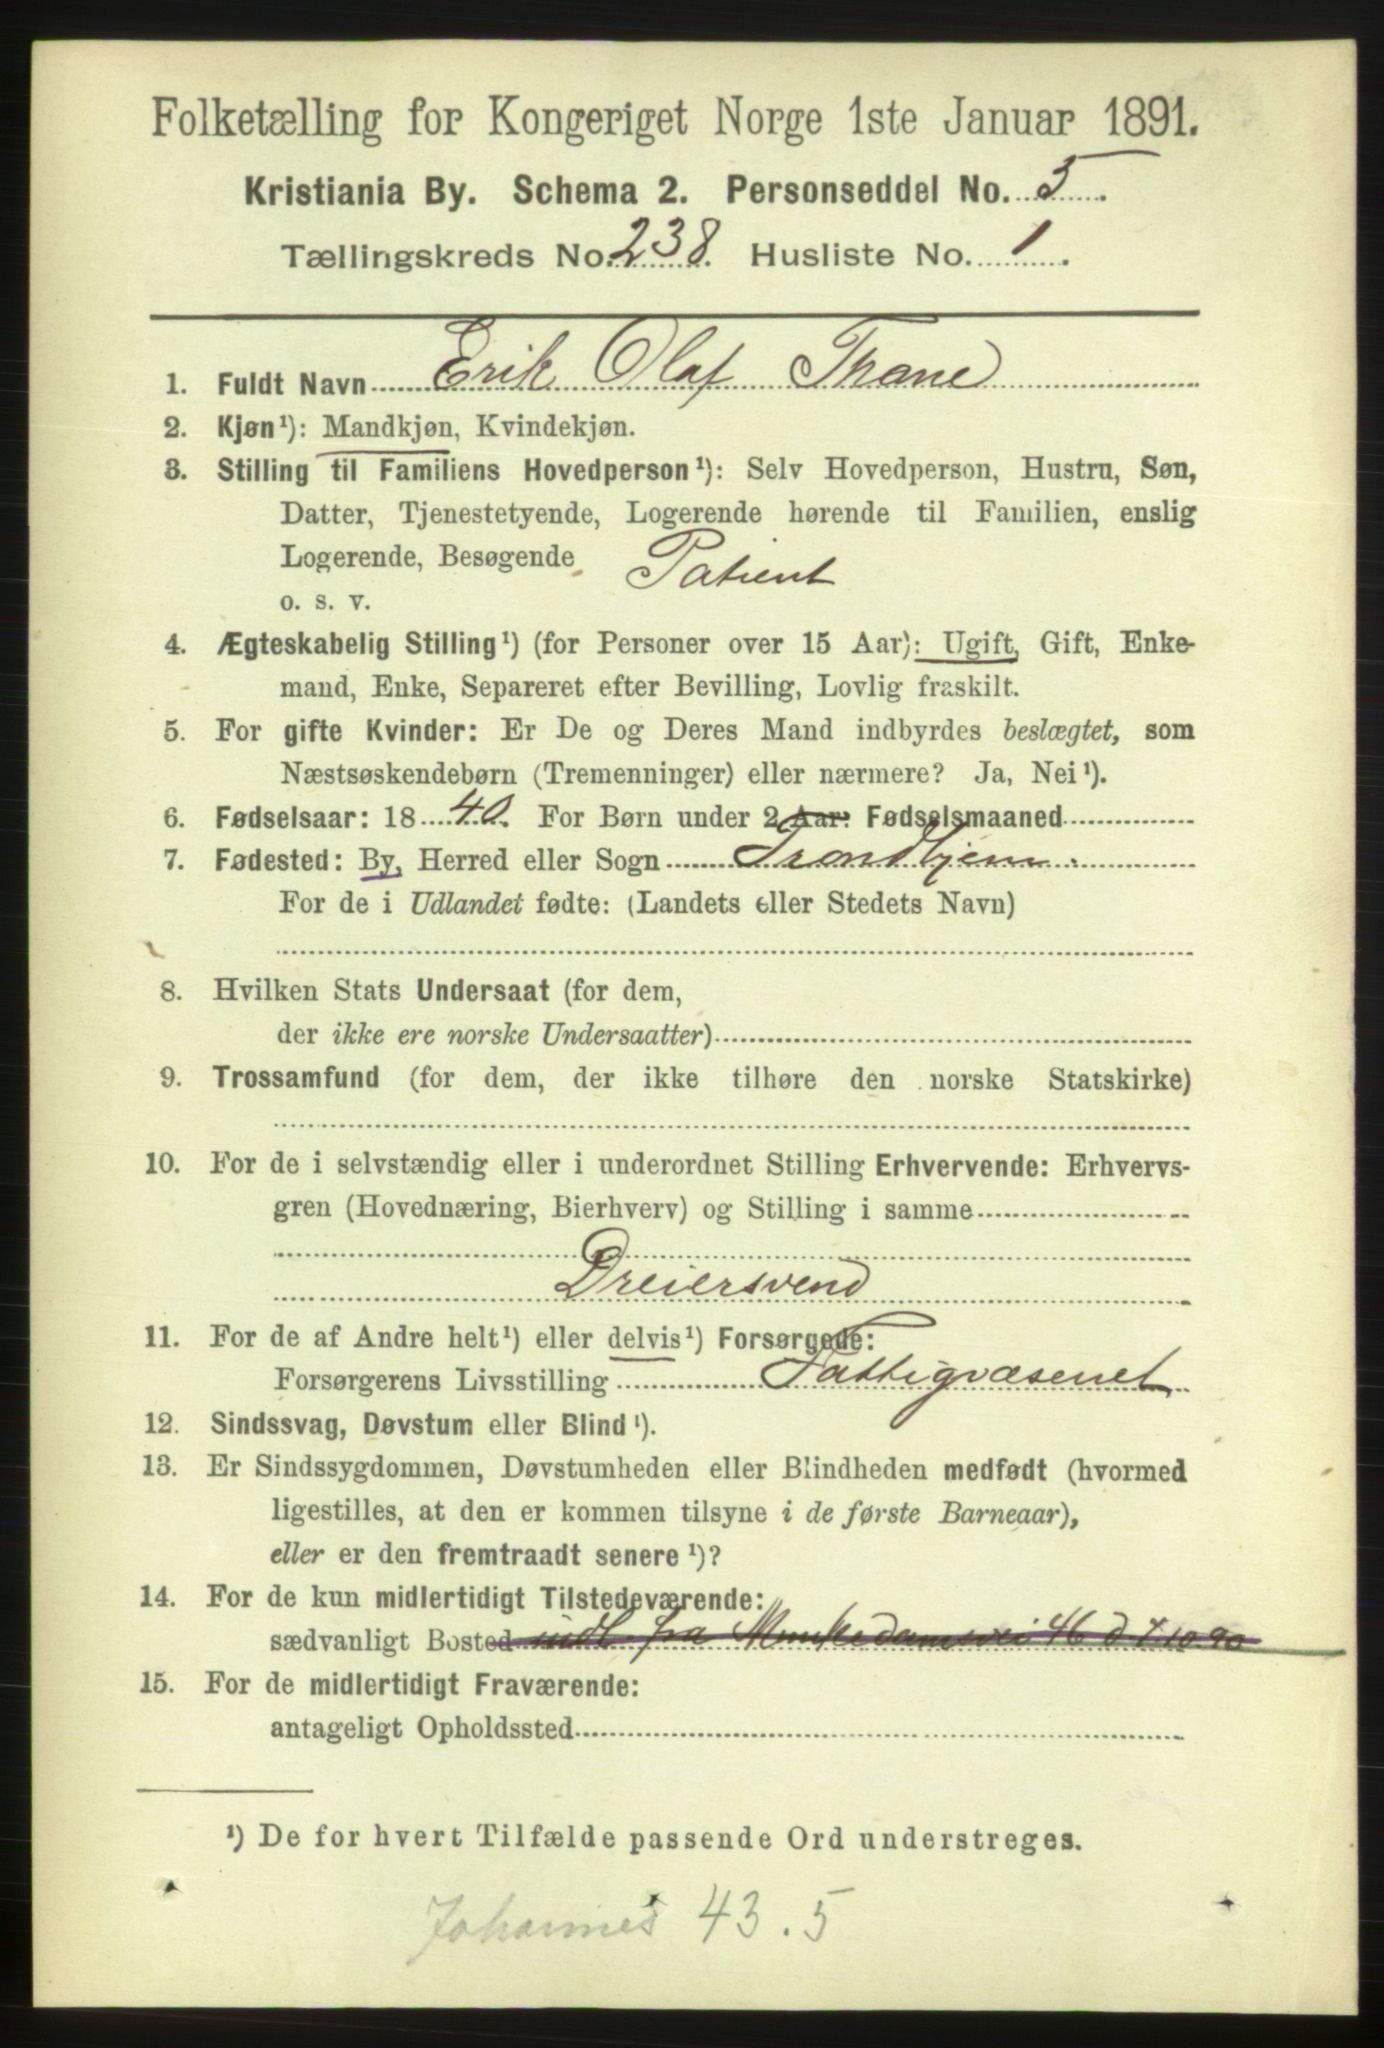 Folketælling for Kongeriget Norge 1ste Januar 1891.
Kristiania By. Schema 2. Personseddel No. 5
Tællingskreds No. 238 Husliste No. 1
1. Fuldt Navn Erik Olaf Thane
2. Kjøn¹): Mandkjøn, Kvindekjøn.
3. Stilling til Familiens Hovedperson¹): Selv Hovedperson, Hustru, Søn,
Datter, Tjenestetyende, Logerende hørende til Familien, enslig
Logerende, Besøgende Patient
o. s. v.
4. Ægteskabelig Stilling¹) (for Personer over 15 Aar): Ugift, Gift, Enke-
mand, Enke, Separeret efter Bevilling, Lovlig fraskilt.
5. For gifte Kvinder: Er De og Deres Mand indbyrdes beslægtet, som
Næstsøskendebørn (Tremenninger) eller nærmere? Ja, Nei¹).
6. Fødselsaar: 1840. For Børn under 2 Aar: Fødselsmaaned
7. Fødested: By, Herred eller Sogn Trondhjem.
For de i Udlandet fødte: (Landets eller Stedets Navn)
8. Hvilken Stats Undersaat (for dem,
der ikke ere norske Undersaatter)
9. Trossamfund (for dem, der ikke tilhøre den norske Statskirke)
10. For de i selvstændig eller i underordnet Stilling Erhvervende: Erhvervs-
gren (Hovednæring, Bierhverv) og Stilling i samme
Dreiersvend
11. For de af Andre helt¹) eller delvis¹) Forsørgede:
Forsørgerens Livsstilling Fattigvæsenet
12. Sindssvag, Døvstum eller Blind¹).
13. Er Sindssygdommen, Døvstumheden eller Blindheden medfødt (hvormed
ligestilles, at den er kommen tilsyne i de første Barneaar),
eller er den fremtraadt senere¹)?
14. For de kun midlertidigt Tilstedeværende:
sædvanligt Bosted indl. fra Munkedamsvei 46 d 7 10 90
15. For de midlertidigt Fraværende:
antageligt Opholdssted
¹) De for hvert Tilfælde passende Ord understreges.
Johannes 43. 5